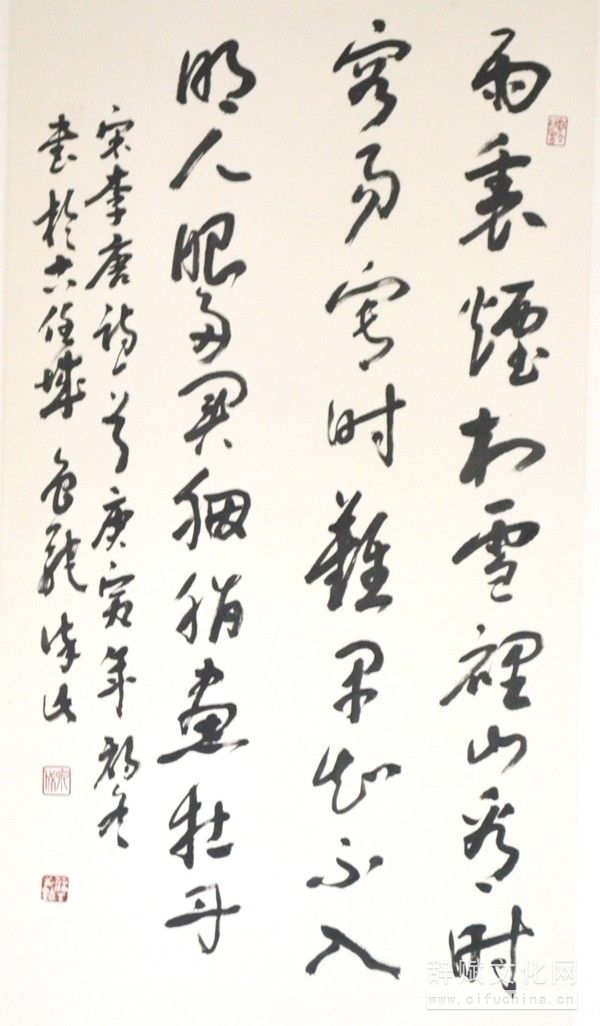 雨裏煙村雪裡山看时
容易写时難早知不入
时人眼多買胭脂畫牡丹
宋李唐诗一首庚寅年初冬
書於古任城
辞赋文化网
www.cifuchina.cn